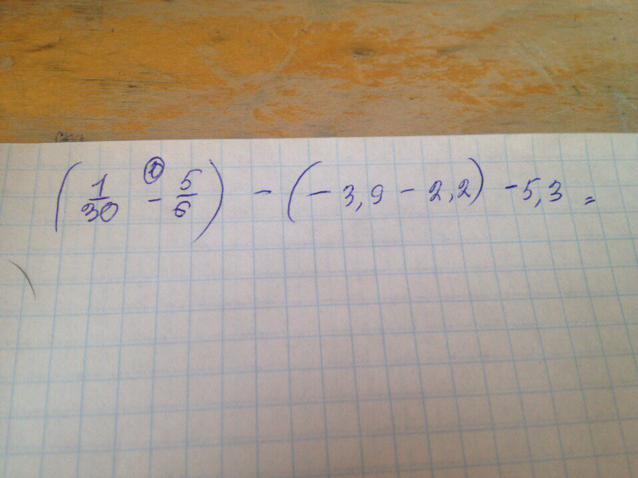 (1/30 - 5/6) - (-3,9 - 2,2) - 5,3 =